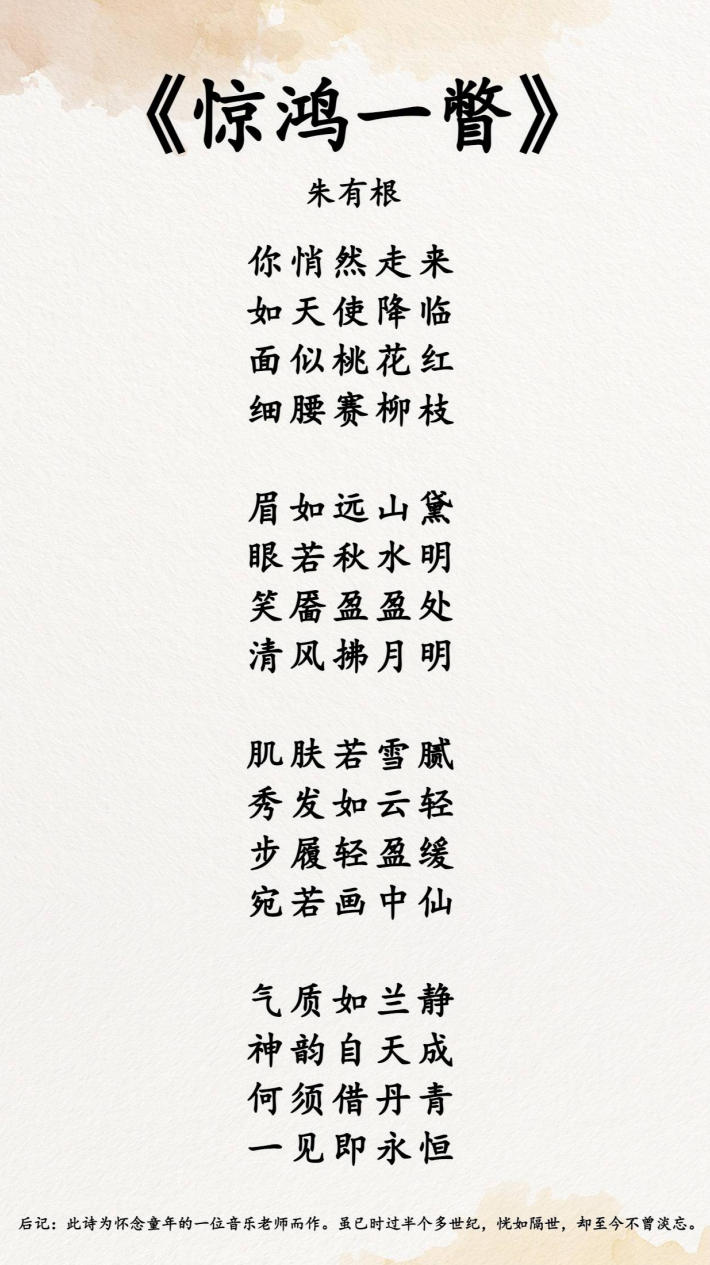 《惊鸿一瞥》
朱有根
你悄然走来
如天使降临
面似桃花红
细腰赛柳枝
眉如远山黛
眼若秋水明
笑靥盈盈处
清风拂月明
肌肤若雪腻
秀发如云轻
步履轻盈缓
宛若画中仙
气质如兰静
神韵自天成
何须借丹青
一见即永恒
后记：此诗为怀念童年的一位音乐老师而作。虽已时过半个多世纪，恍如隔世，却至今不曾淡忘。